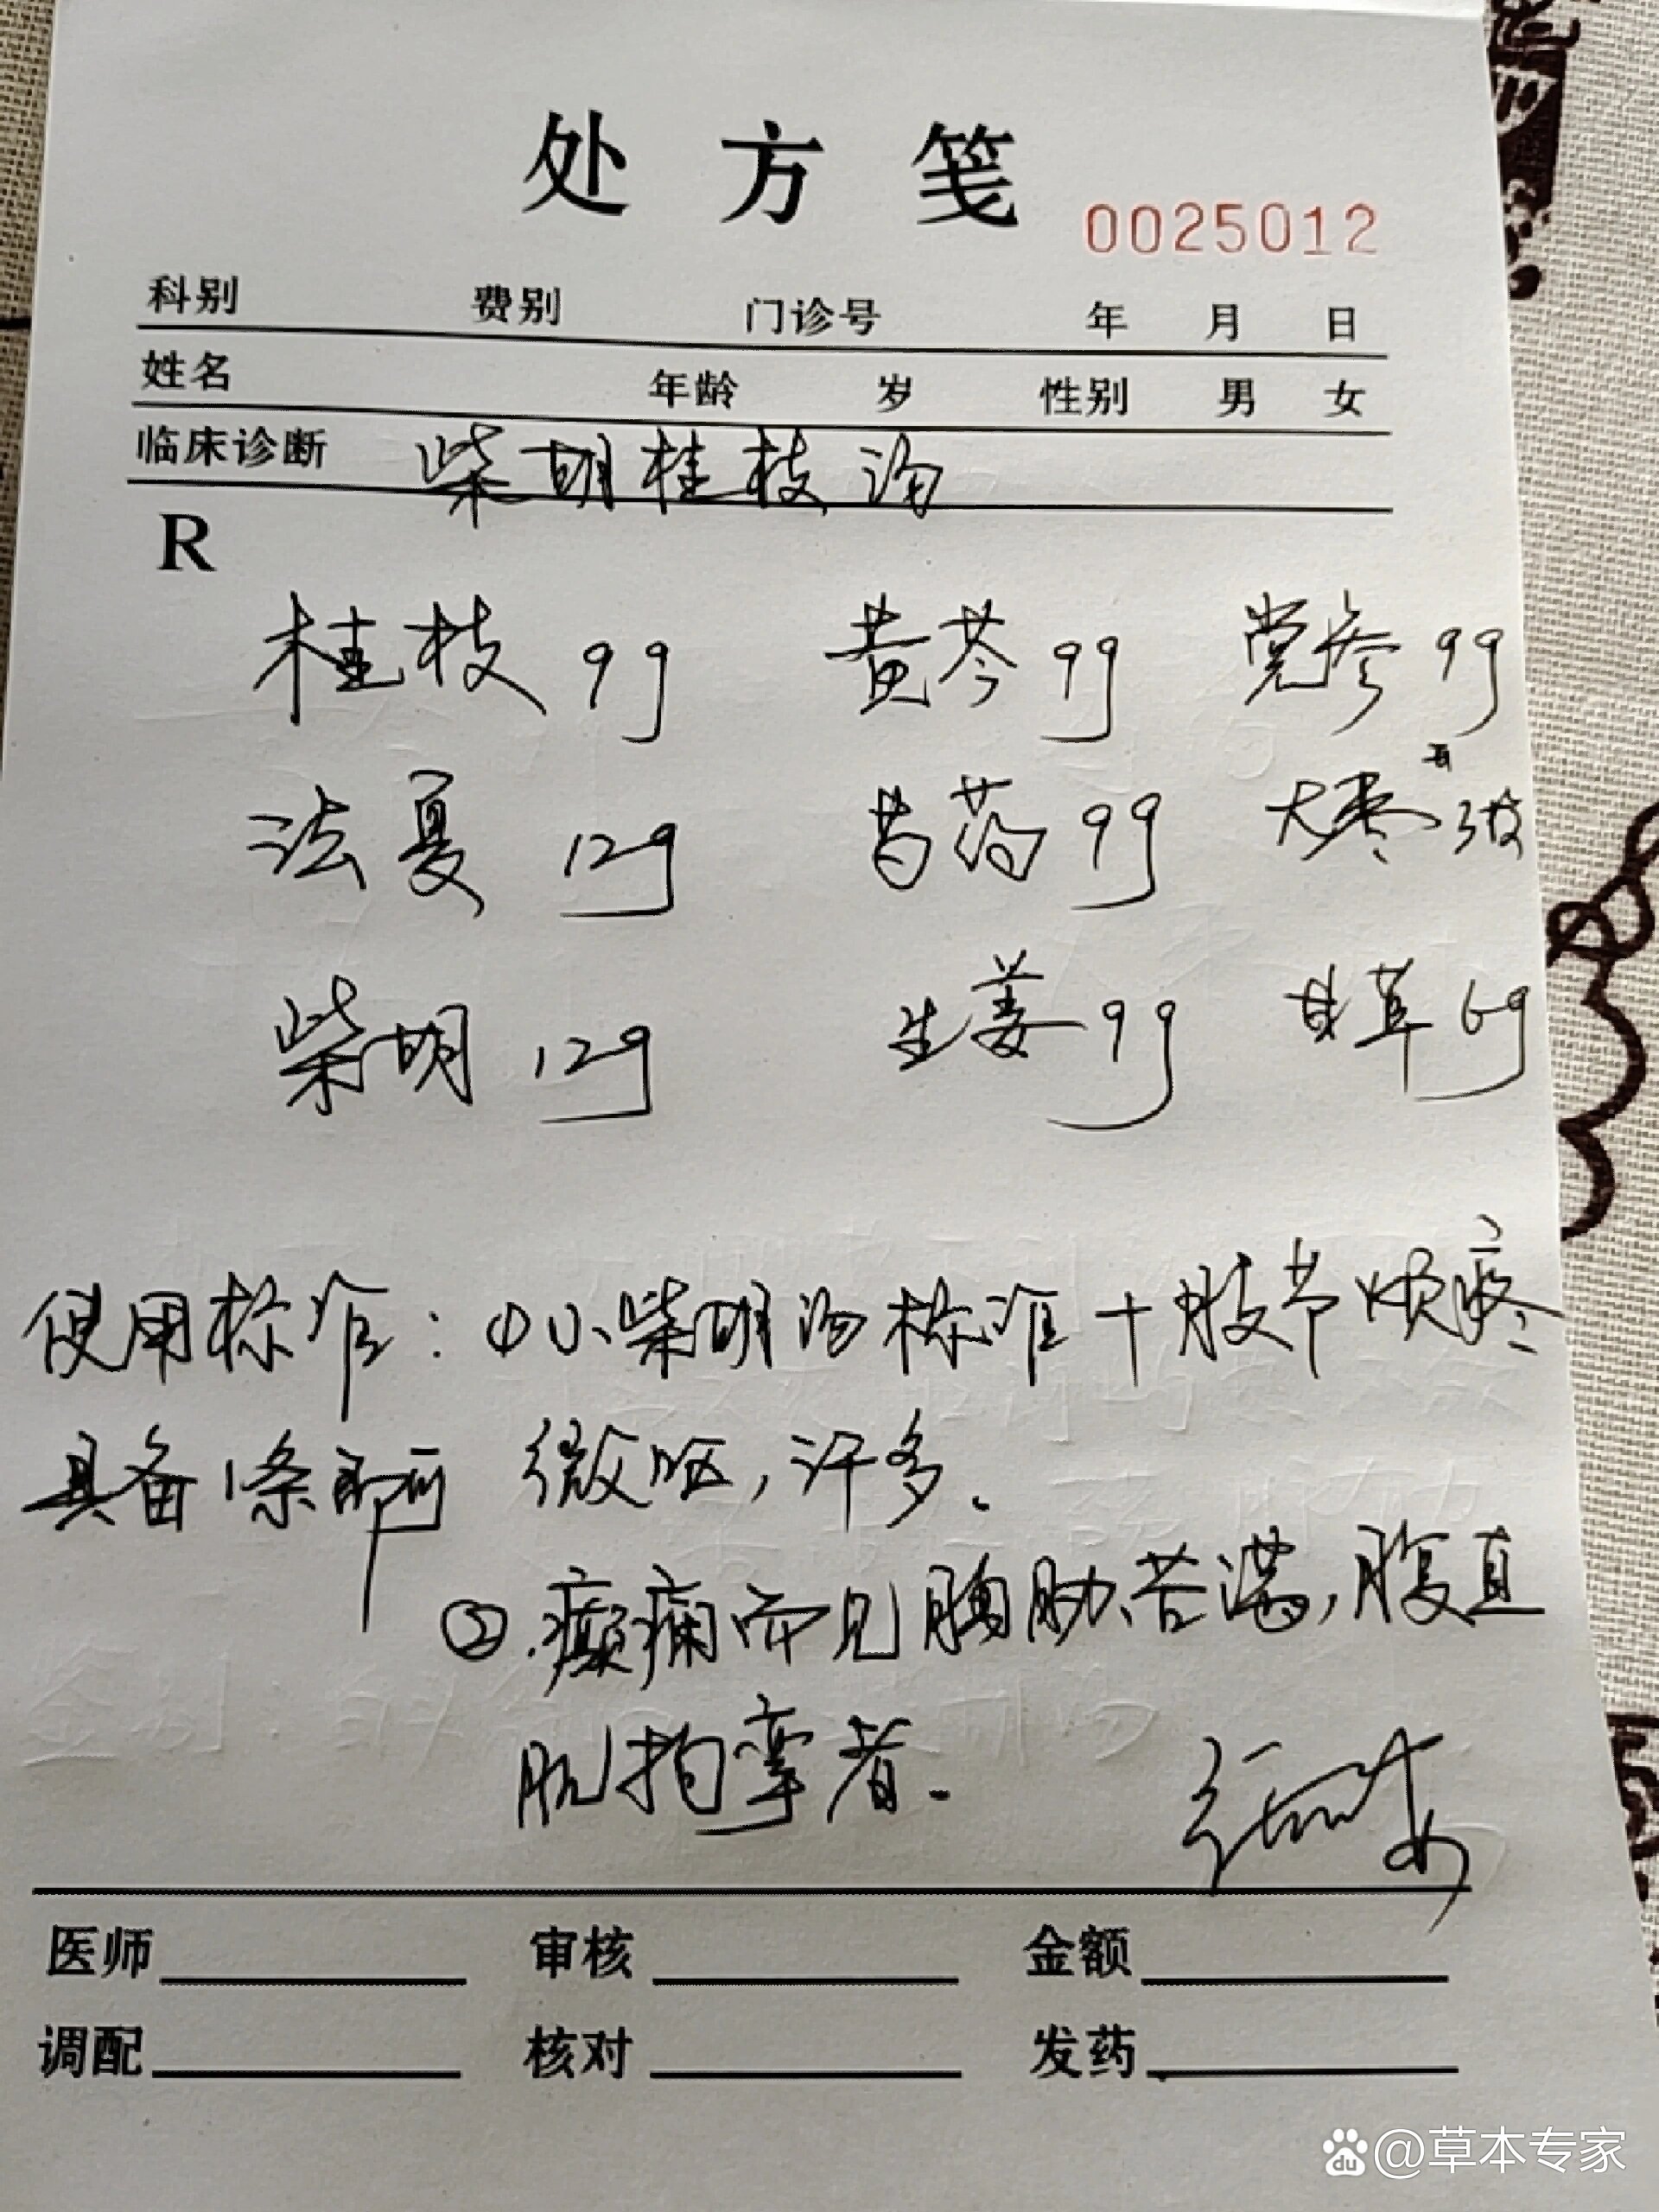 处方笺
0025012
科别 费别 门诊号 年 月 日
姓名 年龄 岁 性别 男 女
临床诊断 柴胡桂枝汤
R
桂枝 9g 黄芩 9g 党参 9g
法夏 12g 芍药 9g 大枣 3枚
柴胡 12g 生姜 9g 甘草 6g
使用标准：①小柴胡汤标准+肢节烦疼
具备1条即可 微呕，汗多。
②.癫痫而见胸胁苦满，腹直
肌拘挛者.
医师 审核 金额
调配 核对 发药
du @草本专家